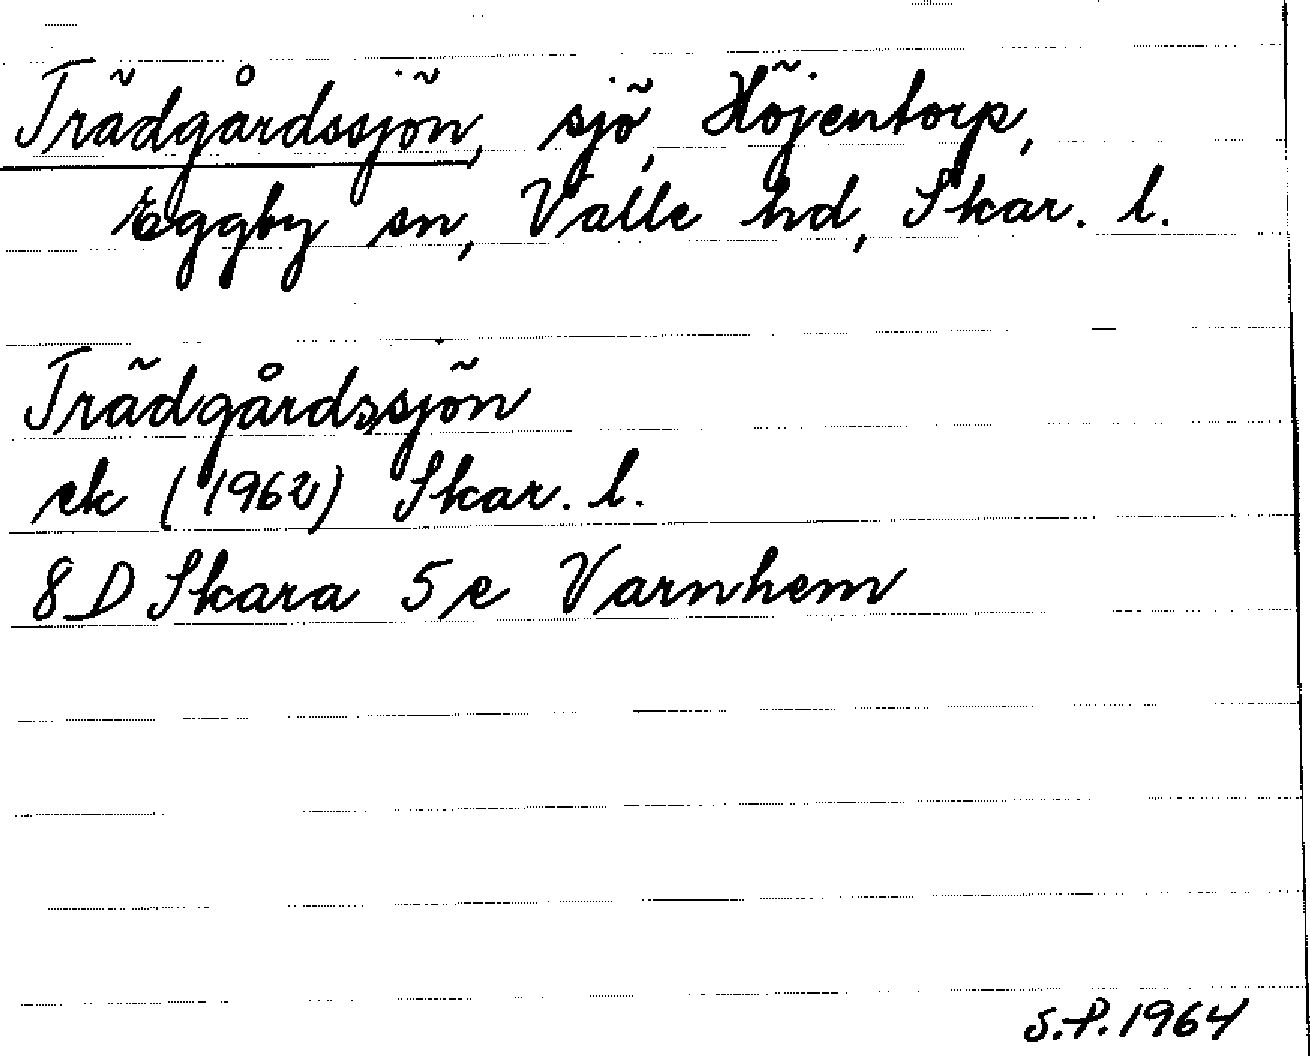 Trädgårdssjön, sjö, Höjentorp,
Eggby sn, Valle hd, Skar. l.
Trädgårdssjön
ek (1962) Skar. l.
8D Skara 5e Varnhem
S.P. 1964